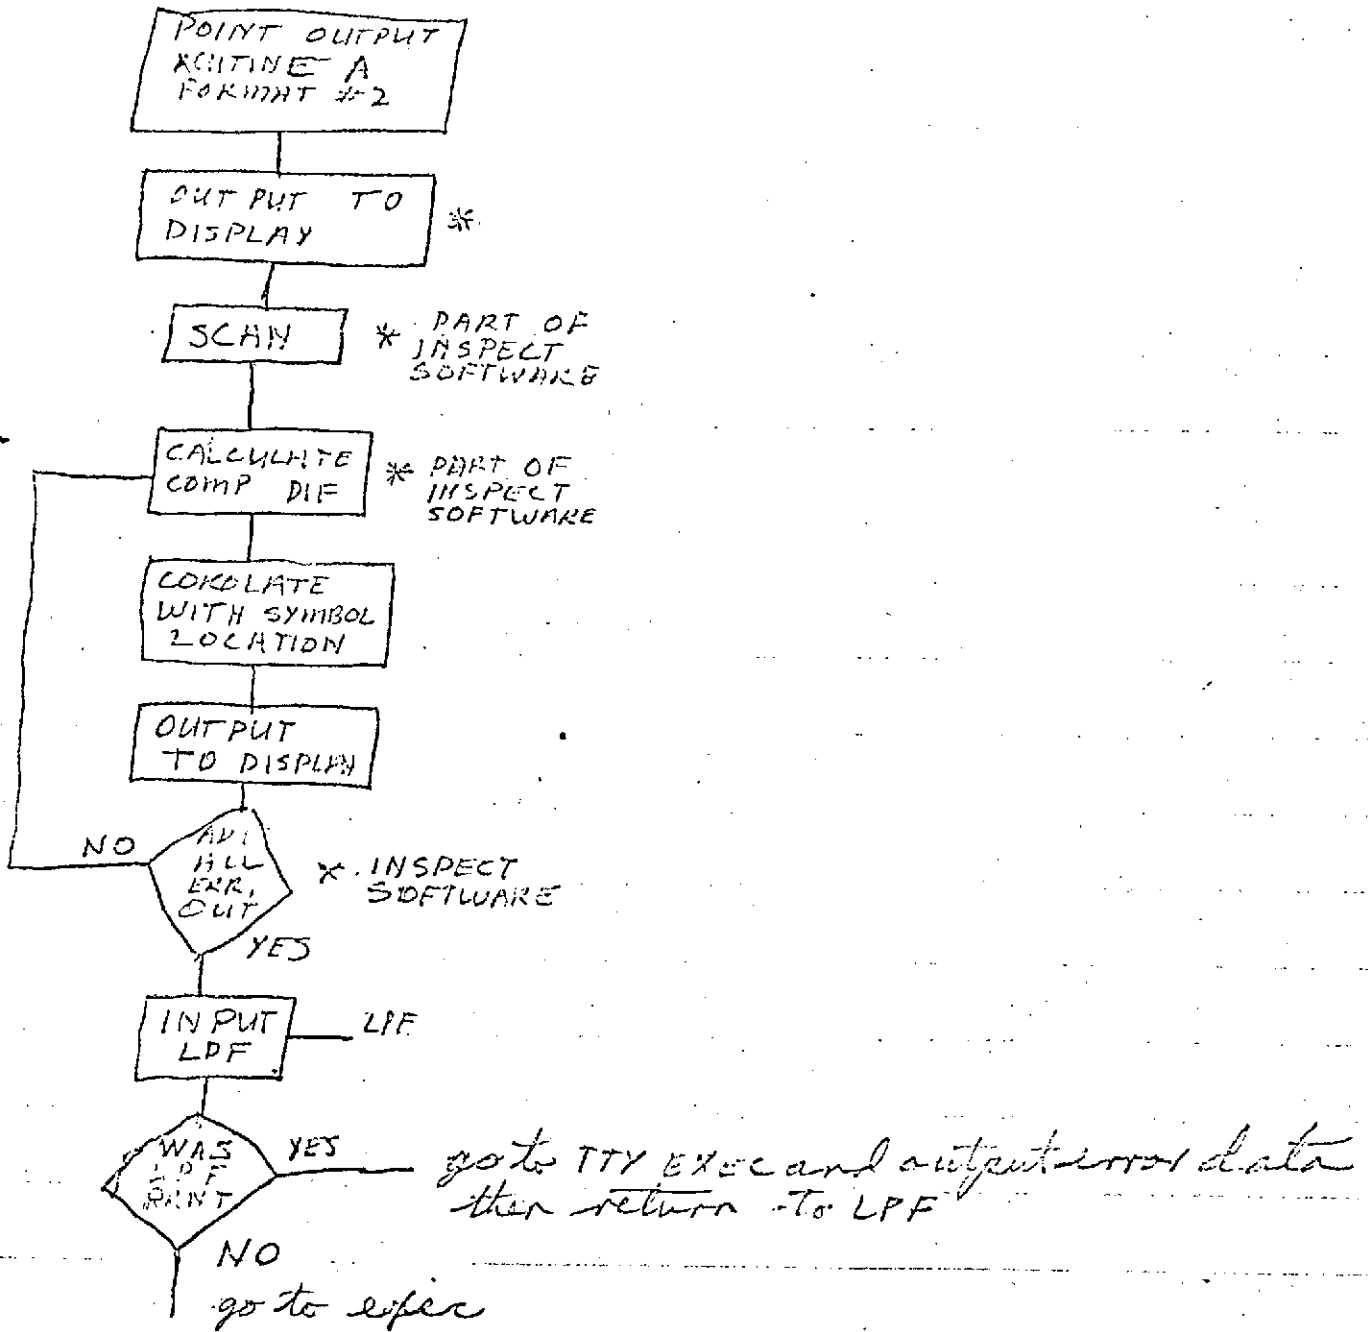 POINT OUTPUT
A
FORMAT #2
OUTPUT TO
DISPLAY
*
SCAN
* PART OF
INSPECT
SOFTWARE
CALCULATE
COMP DIF
* PART OF
INSPECT
SOFTWARE
COROLATE
WITH SYMBOL
LOCATION
OUTPUT
TO DISPLAY
NO
ALL
ERR.
OUT
* INSPECT
SOFTWARE
YES
INPUT
LPF
LPF
WAS
LPF
PRNT
YES
go to TTY EXEC and output error data
then return to LPF
NO
go to exec